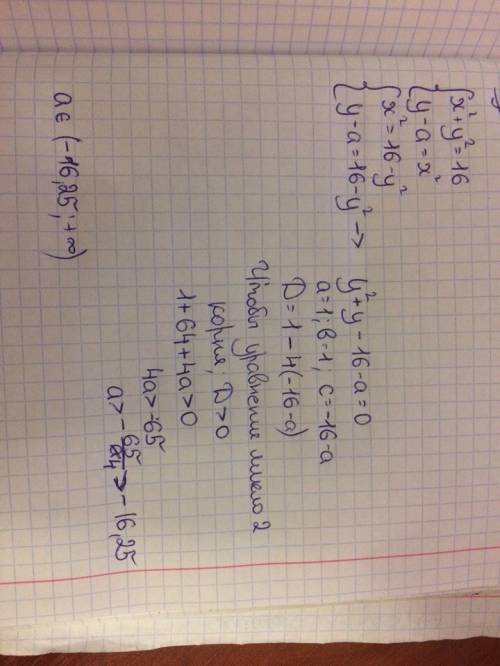 {x²+y²=16
{y-a=x²
{x²=16-y²
{y-a=16-y² –> y²+y-16-a=0
a=1; в=1; c=-16-a
D=1-4(-16-a)
Чтобы уравнение имело 2
корня, D>0
1+64+4a>0
4a>-65
a>-65/4>-16,25
a∈(-16,25; +∞)